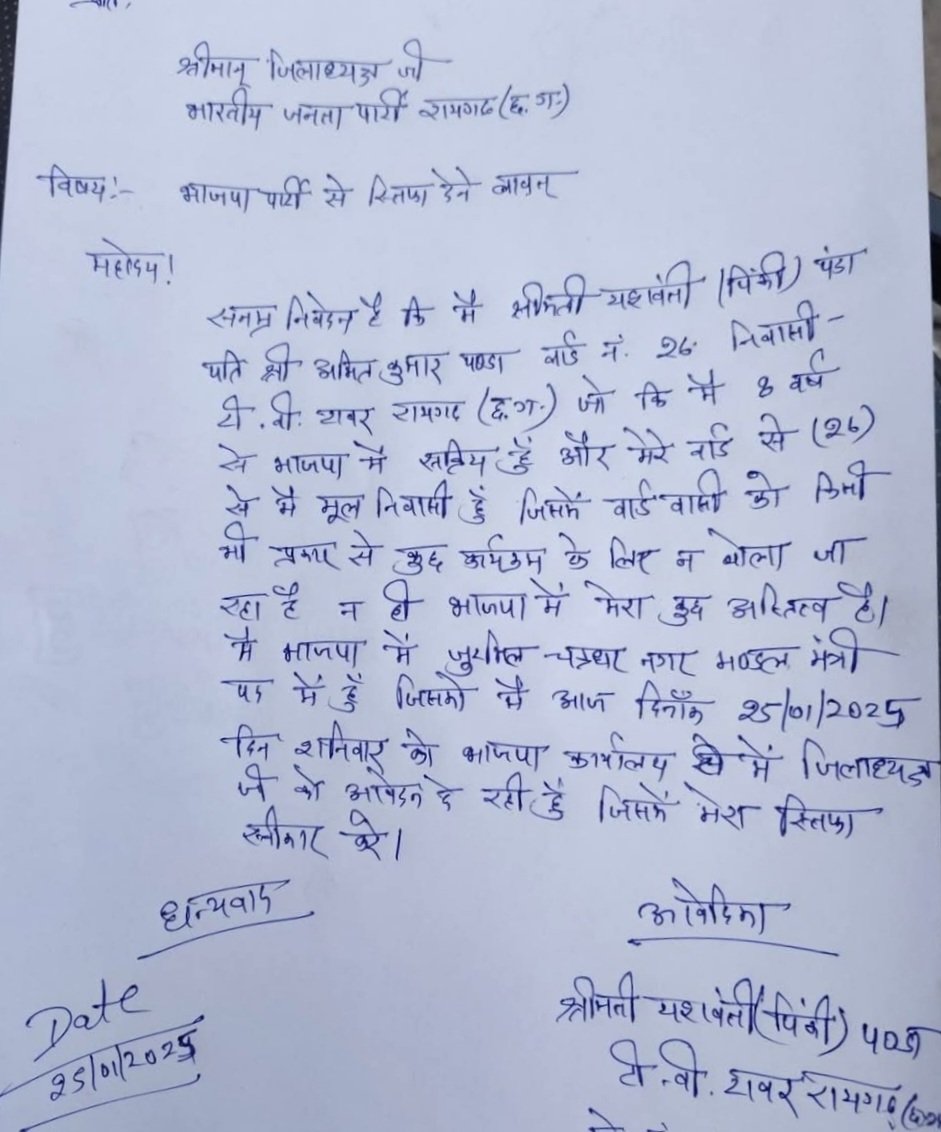 श्रीमान् जिलाध्यक्ष जी
भारतीय जनता पार्टी रायगढ (छ.ग.)
विषय:- भाजपा पार्टी से स्तिफा देने बावत्
महोदय!
सनम्र निवेदन है कि मै श्रीमती यशवंती (पिंकी) पंडा
पति श्री अमित कुमार पण्डा वार्ड नं. 26. निवासी -
टी.वी. टावर रायगढ (छ.ग.) जो कि मै 8 वर्ष
से भाजपा मे सक्रिय हूँ और मेरे वार्ड से (26)
से मै मूल निवासी हूं जिसमें वार्ड वासी को किसी
भी प्रकार से कुछ कार्यक्रम के लिए न बोला जा
रहा है न ही भाजपा में मेरा कुछ अस्तित्व है।
मै भाजपा में जुटमिल चक्रधर नगर मण्डल मंत्री
पद में हूँ जिसको मै आज दिनाँक 25/01/2025
दिन शनिवार को भाजपा कार्यालय में जिलाध्यक्ष
जी को आवेदन दे रही हूँ जिसमें मेरा स्तिफा
स्वीकार करे।
धन्यवाद
आवेदिका
Date
25/01/2025
श्रीमती यशवंती (पिंकी) पण्डा
टी.वी. टावर रायगढ़ (छ.ग